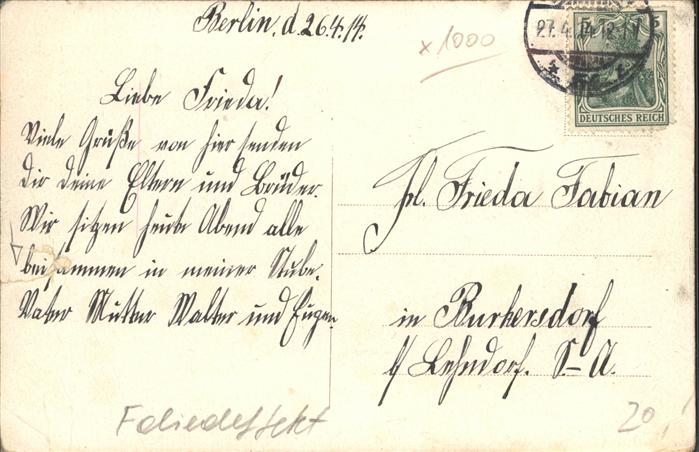 Berlin, d. 26.4.14.
x 1000
27.4.14.12-1N
DEUTSCHES REICH
Liebe Frieda!
Viele Grüße von hier senden
Dir Deine Eltern und Brüder.
Wir sitzen heute Abend alle
beisammen in meiner Stube.
Vater Mutter Walter und Eugen.
Frl. Frieda Fabian
in Burkersdorf
b/ Lehndorf. S-A.
20